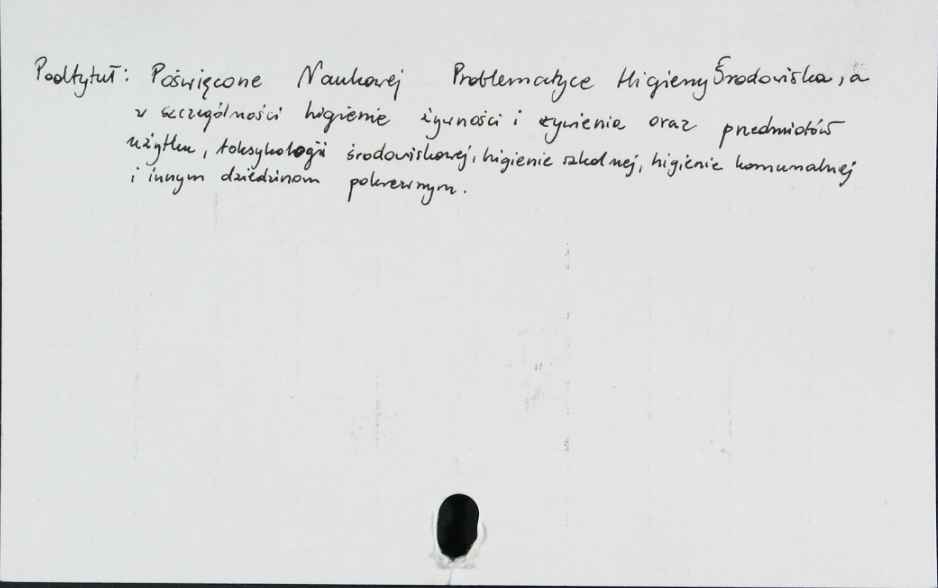 Podtytuł: Poświęcone Naukowej Problematyce Higieny Środowiska, a
w szczególności higienie żywności i żywienia oraz przedmiotów
użytku, toksykologii środowiskowej, higienie szkolnej, higienie komunalnej
i innym dziedzinom pokrewnym.